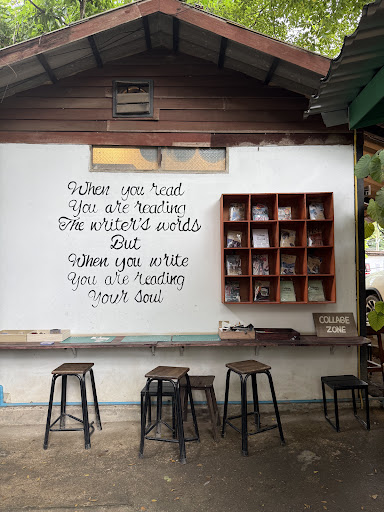 When you read
You are reading
The writer's words
But
When you write
You are reading
Your soul
COLLABE
ZONE